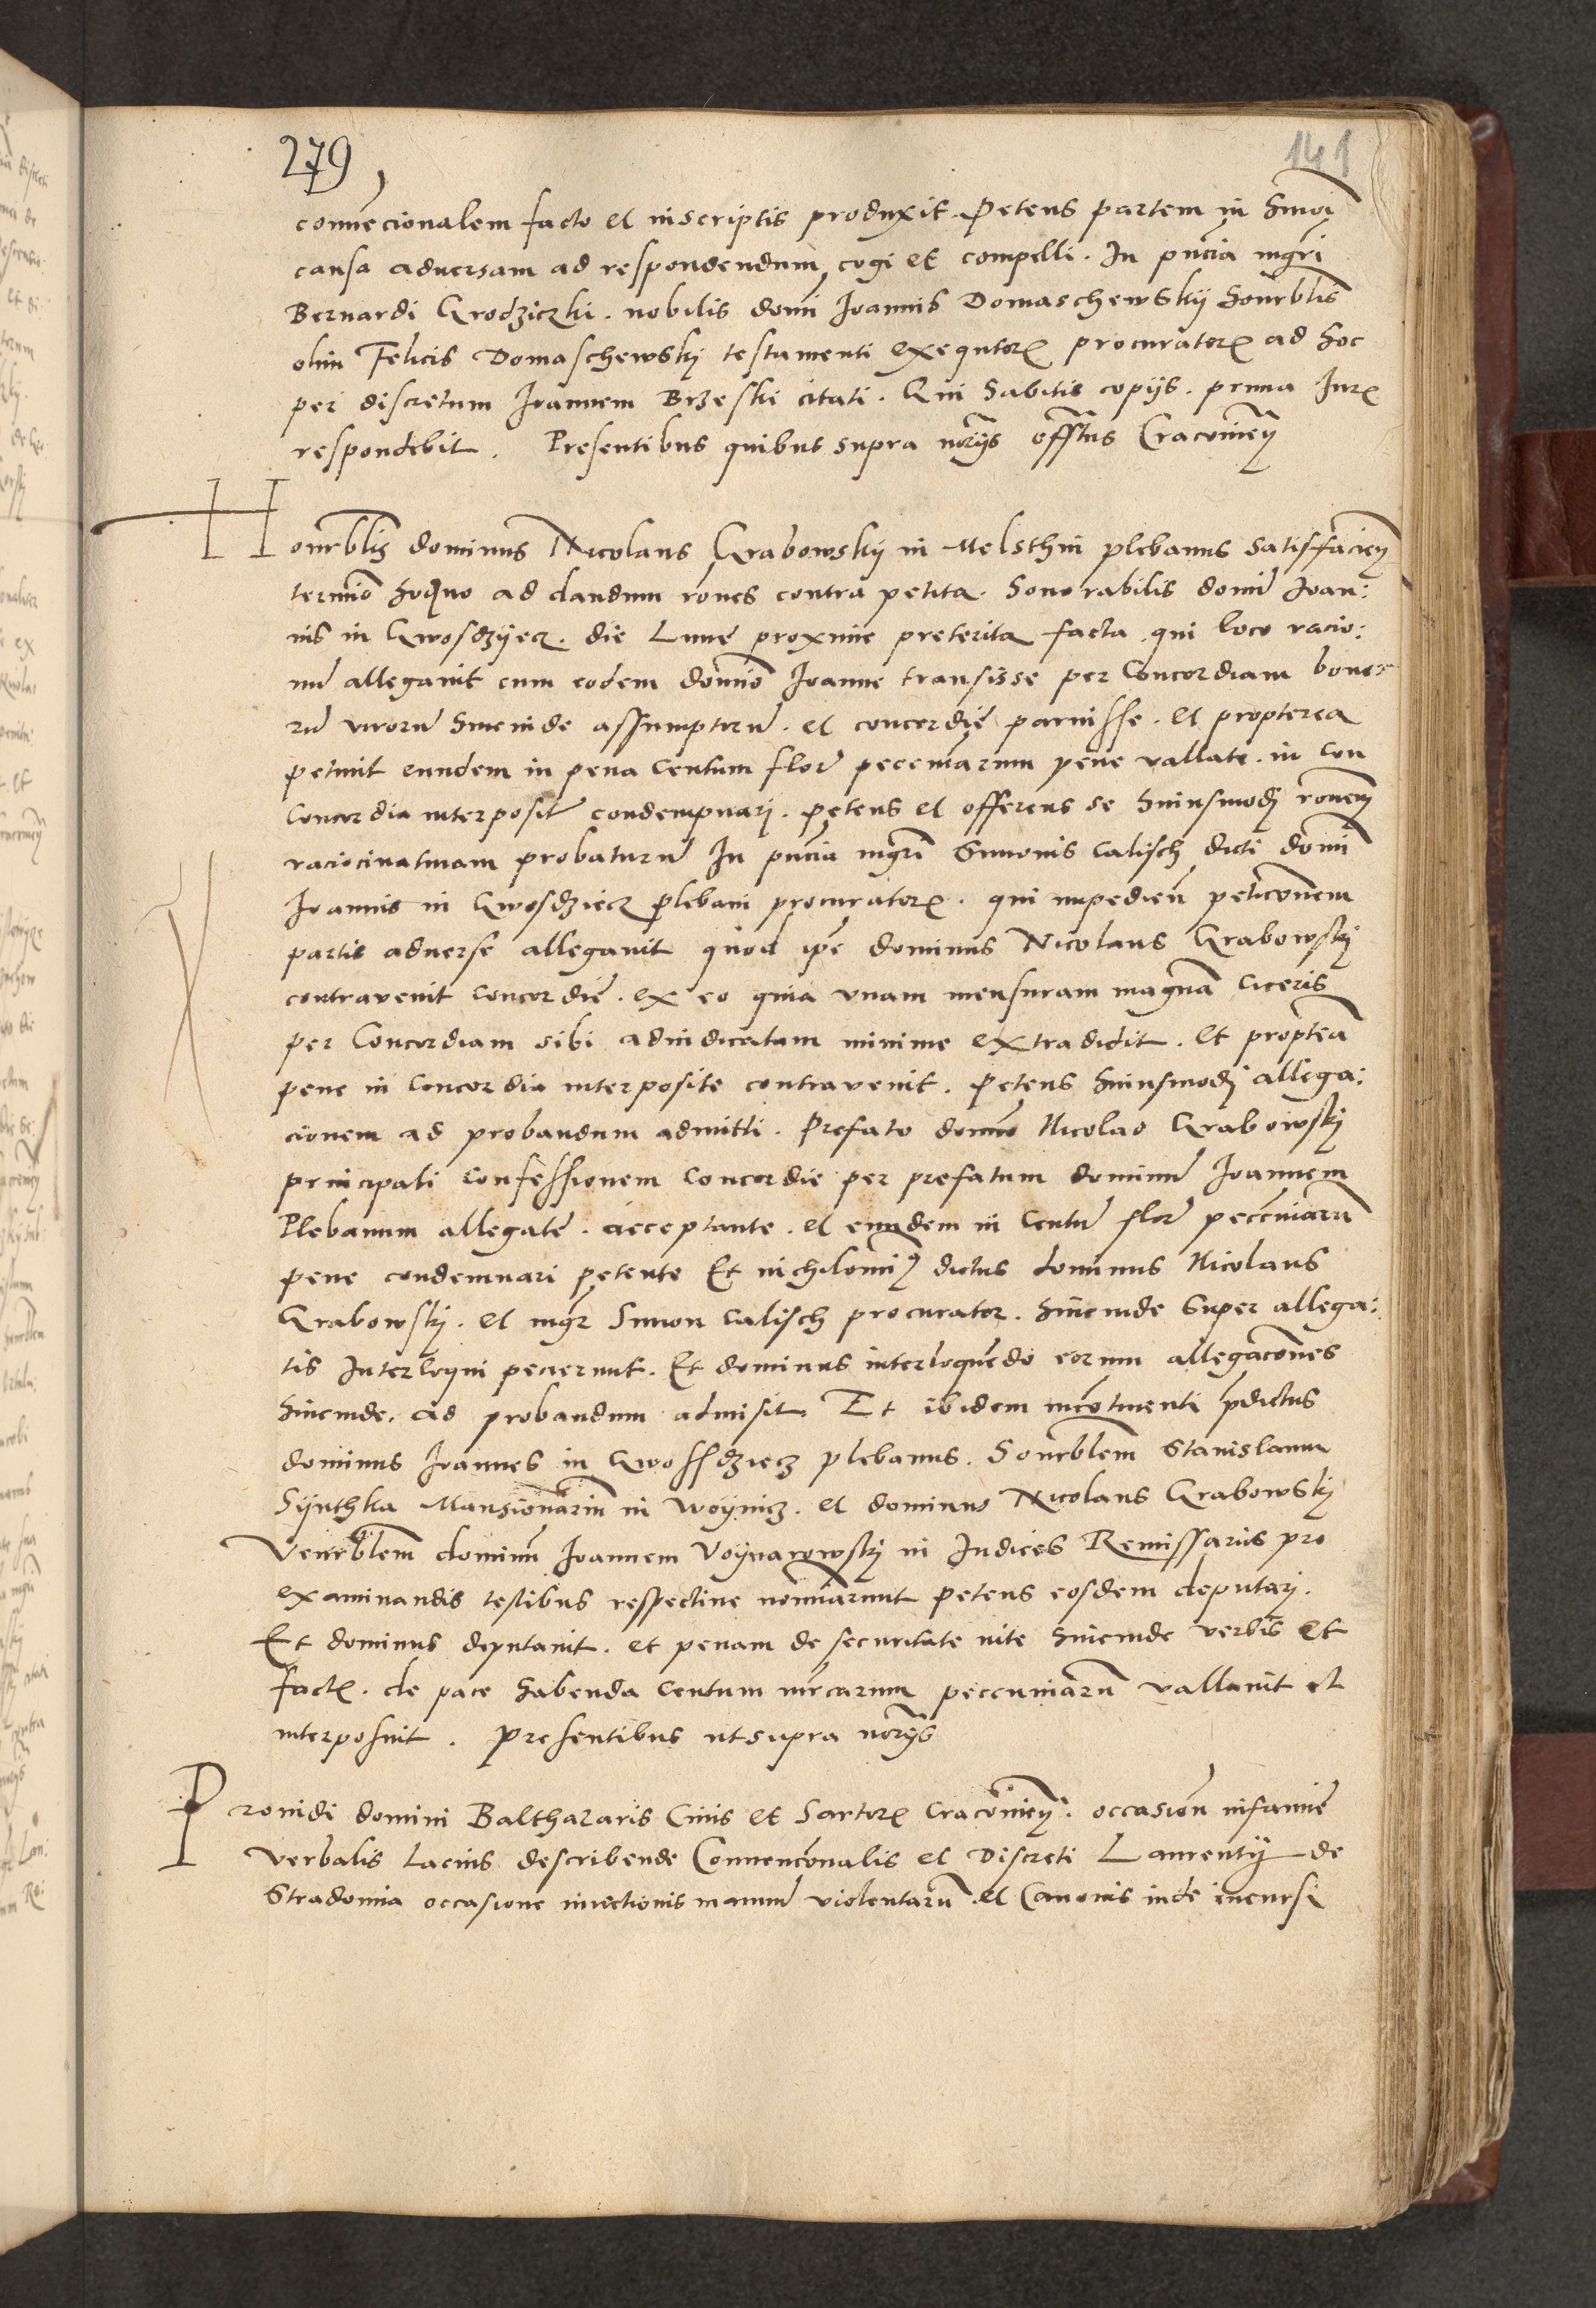 279
141
convecionalem facto et inscriptis produxit. Petens partem in hmoi
causa adversam ad respondendum cogi et compelli. In pncia mgri
Bernardi Grodziczki. nobilis domi Joannis Domaschewskij honrblis
olim Felicis Domaschewskj testamenti exequtor procurator ad hoc
per discretum Joannem Brzeski citati. Qui habitis copijs. prima Jur
respondebit. Presentibus quibus supra norijs offitus Cracovien
Honrblis dominus Nicolaus Grabowskij in Melsthin plebanus satisfacien
termio hoduo ad dandum rones contra petita. honorabilis domi Joan:
nis in Gwosdzyecz. die Lune proxime preterita facta qui loco racio:
nu allegavit cum eodem domio Joanne transisse per Concordiam bono:
ru viroru hincinde assumptoru. et concordie paruisse. et propterea
petivit eundem in pena centum flor peccuniarum pene vallate. in con
Concordia interposit condempnari. petens et offerens se huiusmodj ronem
raciocinativam probaturu In pncia mgri Simonis Calisch dicti domi
Joannis in Gwosdziecz plebani procurator. qui impedien peticonem
partis adverse allegavit quod ipe dominus Nicolaus Grabowskj
contravenit concordie. ex eo quia unam mensuram magna ciceris
per Concordiam sibi adiudicatam minime extradidit. Et proptea
pene in concordia interposite contravenit. Petens huiusmodj allega:
cionem ad probandum admitti. Prefato domio Nicolao Grabowskj
principali confessionem concordie per prefatum dominu Joannem
Plebanum allegate. acceptante. et eundem in centu flor peccuniaru
pene condemnari petente Et nichilomi9 dictus dominus Nicolaus
Grabowskj. et mgr Simon Calisch procurator. hincinde super allega:
tis Interloqui pecierunt. Et dominus interloquedo eorum allegacones
hincinde. ad probandum admisit. Et ibidem incotinenti pdictus
dominus Joannes in Gwossdziecz plebanus. honrblem Stanislaum
Synthka Mansionariu in Woynicz. et dominus Nicolaus Grabowskj
Venrblem dominu Joannem Voynarowskj in Judices Remissarius pro
examinandis testibus respective nominarunt petens eosdem deputarj.
Et dominus deputavit. et penam de securitate vite hincinde verbis et
fact. de pace habenda centum mrcarum peccuniaru vallavit et
interposuit. Presentibus utsupra norijs
Providi domini Balthazaris Civis et Sartor Cracovien. occasion infamie
verbalis Lacius describende Convenconalis et Discreti Laurentij de
Stradomia occasione iniectionis manuu violentaru et Canonis inde incursi